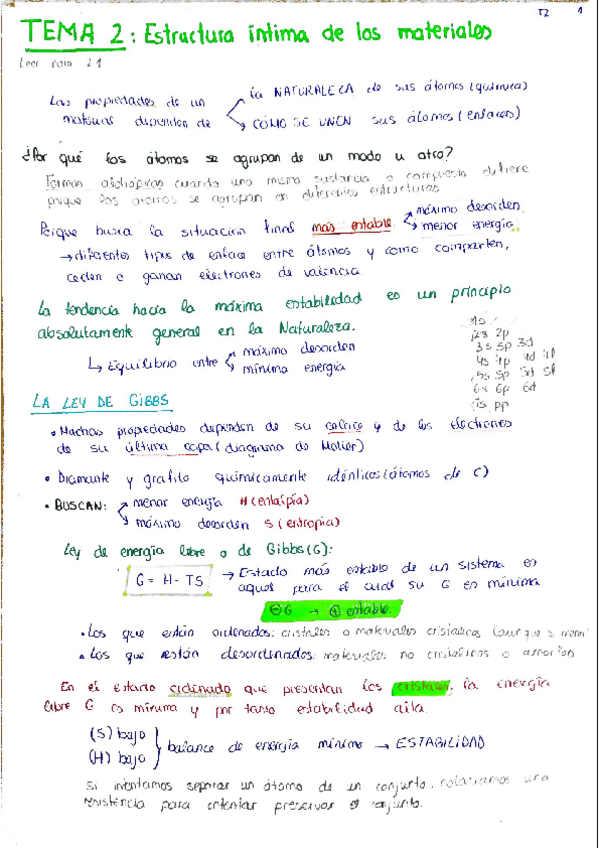 T2 1
TEMA 2: Estructura íntima de los materiales
Leer 2.1
Las propiedades de un material dependen de
la NATURALEZA de sus átomos (química)
CÓMO SE UNEN sus átomos (enlaces)
¿Por qué los átomos se agrupan de un modo u otro?
Formas alotrópicas cuando una misma sustancia o compuesto difiere
porque los átomos se agrupan en diferentes estructuras
Porque busca la situación final más estable
máximo desorden
menor energía.
→ diferentes tipos de enlace entre átomos y como comparten,
ceden o ganan electrones de valencia
La tendencia hacia la máxima estabilidad es un principio
absolutamente general en la Naturaleza.
Equilibrio entre
máximo desorden
mínima energía
1s
2s 2p
3s 3p 3d
4s 4p 4d 4f
5s 5p 5d 5f
6s 6p 6d
7s
LA LEY DE GIBBS
• Muchas propiedades dependen de su enlace y de los electrones
de su última capa (diagrama de)
• Diamante y grafito químicamente idénticos (átomos de C)
• BUSCAN:
menor energía H (entalpía)
máximo desorden S (entropía)
Ley de energía libre o de Gibbs (G):
G = H - TS
→ Estado más estable de un sistema es
aquel para el cual su G es mínima
⊖G → ⊕ estable
• Los que están ordenados: cristales o materiales cristalinos
• Los que están desordenados: materiales no cristalinos o amorfos
En el estado ordenado que presentan los cristales, la energía
libre G es mínima y por tanto estabilidad alta.
(S) bajo
(H) bajo
balance de energía mínimo → ESTABILIDAD
Si intentamos separar un átomo de un conjunto, una
resistencia para intentar preservar el conjunto.